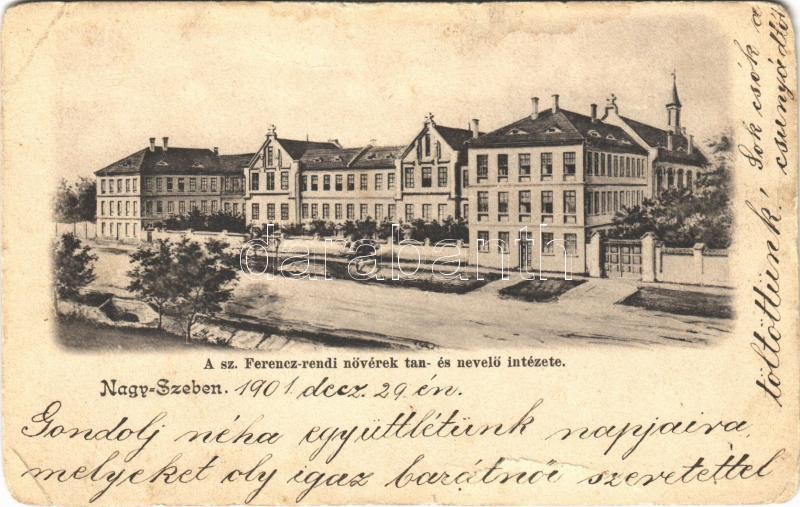 A sz. Ferencz-rendi növérek tan- és nevelő intézete.
Nagy-Szeben. 1901. decz. 29 én.
Gondolj néha együttlétünk napjaira,
melyeket oly igaz barátnői szeretettel
töltöttünk! Sok csók a
csunyádtól
darabanth